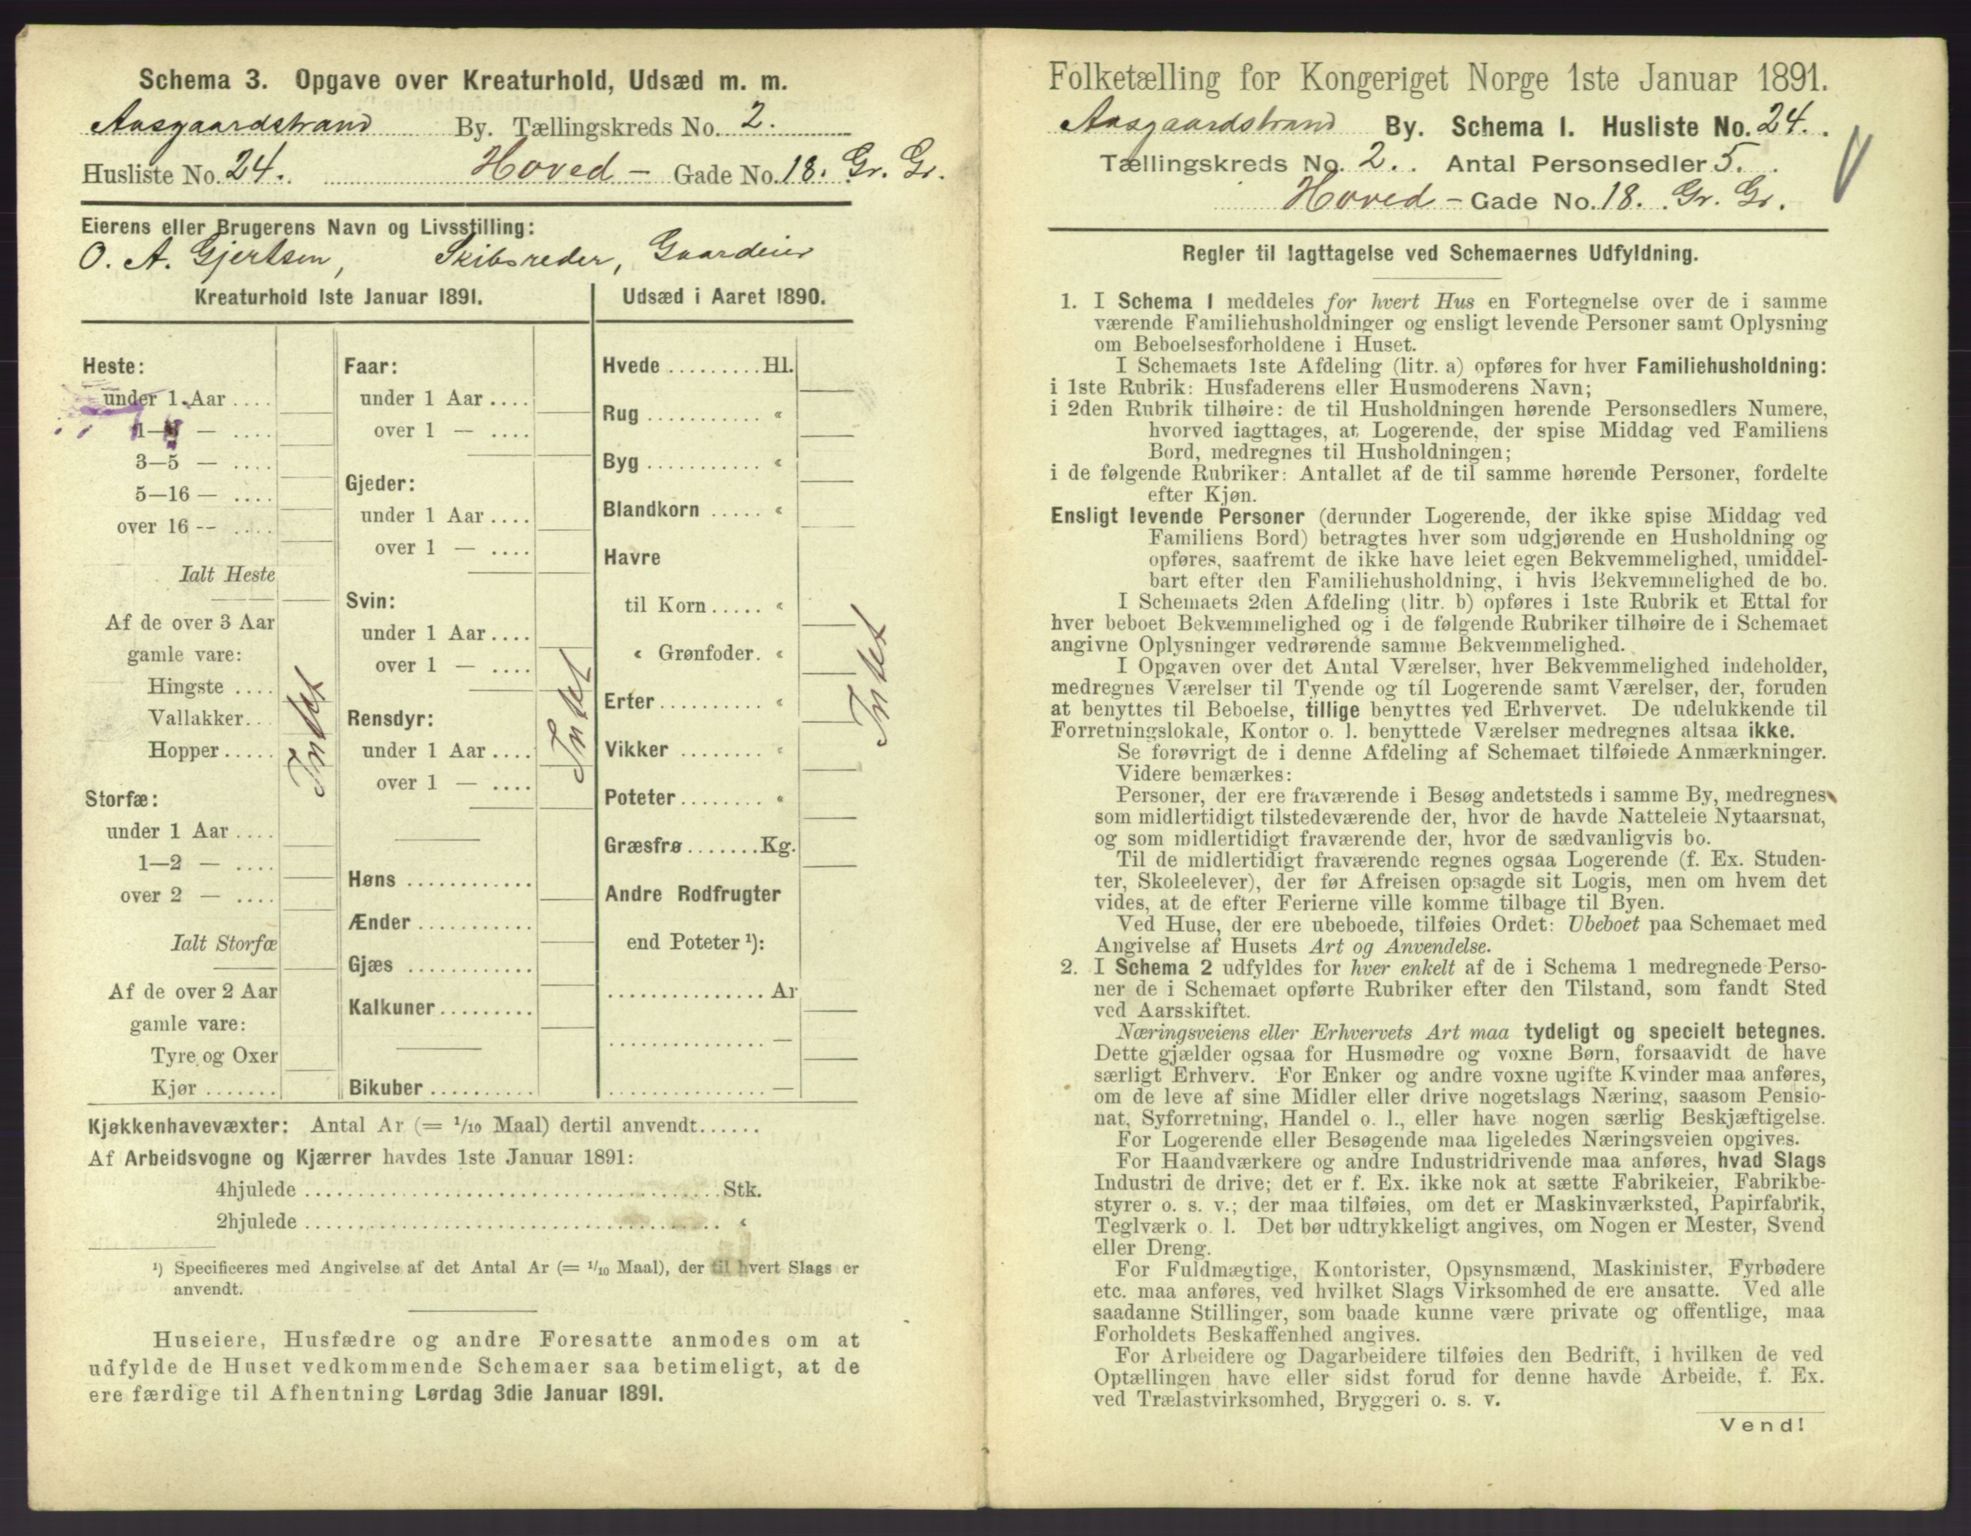 Schema 3. Opgave over Kreaturhold, Udsæd m. m.
Aasgaardstrand By. Tællingskreds No. 2.
Husliste No. 24. Hoved - Gade No. 18. Gr. Gr.
Eierens eller Brugerens Navn og Livsstilling:
O. A. Gjertsen, Skibsreder, Gaardeier
Kreaturhold 1ste Januar 1891.
Heste:
under 1 Aar ....
1— — ....
3—5 — ....
5—16 — ....
over 16 -- ....
Ialt Heste
Af de over 3 Aar
gamle vare:
Hingste ....
Vallakker...
Hopper .....
Storfæ:
under 1 Aar ....
1—2 — ....
over 2 — ....
Ialt Storfæ
Af de over 2 Aar
gamle vare:
Tyre og Oxer
Kjør .......
Intet
Faar:
under 1 Aar ....
over 1 — ....
Gjeder:
under 1 Aar ....
over 1 — ....
Svin:
under 1 Aar ....
over 1 — ....
Rensdyr:
under 1 Aar ....
over 1 — ....
Høns ............
Ænder ...........
Gjæs ............
Kalkuner .........
Bikuber ..........
Intet
Udsæd i Aaret 1890.
Hvede ......... Hl.
Rug ........... «
Byg ........... «
Blandkorn ..... «
Havre
til Korn ..... «
« Grønfoder. «
Erter.......... «
Vikker ........ «
Poteter........ «
Græsfrø ....... Kg.
Andre Rodfrugter
end Poteter ¹):
............... Ar
............... —
............... —
Intet
Kjøkkenhavevæxter: Antal Ar (= 1/10 Maal) dertil anvendt......
Af Arbeidsvogne og Kjærrer havdes 1ste Januar 1891:
4hjulede ....................................... Stk.
2hjulede ....................................... «
¹) Specificeres med Angivelse af det Antal Ar (= 1/10 Maal), der til hvert Slags er
anvendt.
Huseiere, Husfædre og andre Foresatte anmodes om at
udfylde de Huset vedkommende Schemaer saa betimeligt, at de
ere færdige til Afhentning Lørdag 3die Januar 1891.
Folketælling for Kongeriget Norge 1ste Januar 1891.
Aasgaardstrand By. Schema 1. Husliste No. 24.
Tællingskreds No. 2. Antal Personsedler 5.
Hoved - Gade No. 18. Gr. Gr.
Regler til Iagttagelse ved Schemaernes Udfyldning.
1. I Schema 1 meddeles for hvert Hus en Fortegnelse over de i samme
værende Familiehusholdninger og ensligt levende Personer samt Oplysning
om Beboelsesforholdene i Huset.
I Schemaets 1ste Afdeling (litr. a) opføres for hver Familiehusholdning:
i 1ste Rubrik: Husfaderens eller Husmoderens Navn;
i 2den Rubrik tilhøire: de til Husholdningen hørende Personsedlers Numere,
hvorved iagttages, at Logerende, der spise Middag ved Familiens
Bord, medregnes til Husholdningen;
i de følgende Rubriker: Antallet af de til samme hørende Personer, fordelte
efter Kjøn.
Ensligt levende Personer (derunder Logerende, der ikke spise Middag ved
Familiens Bord) betragtes hver som udgjørende en Husholdning og
opføres, saafremt de ikke have leiet egen Bekvemmelighed, umiddel-
bart efter den Familiehusholdning, i hvis Bekvemmelighed de bo.
I Schemaets 2den Afdeling (litr. b) opføres i 1ste Rubrik et Ettal for
hver beboet Bekvemmelighed og i de følgende Rubriker tilhøire de i Schemaet
angivne Oplysninger vedrørende samme Bekvemmelighed.
I Opgaven over det Antal Værelser, hver Bekvemmelighed indeholder,
medregnes Værelser til Tyende og til Logerende samt Værelser, der, foruden
at benyttes til Beboelse, tillige benyttes ved Erhvervet. De udelukkende til
Forretningslokale, Kontor o. l. benyttede Værelser medregnes altsaa ikke.
Se forøvrigt de i denne Afdeling af Schemaet tilføiede Anmærkninger.
Videre bemærkes:
Personer, der ere fraværende i Besøg andetsteds i samme By, medregnes
som midlertidigt tilstedeværende der, hvor de havde Natteleie Nytaarsnat,
og som midlertidigt fraværende der, hvor de sædvanligvis bo.
Til de midlertidigt fraværende regnes ogsaa Logerende (f. Ex. Studen-
ter, Skoleelever), der før Afreisen opsagde sit Logis, men om hvem det
vides, at de efter Ferierne ville komme tilbage til Byen.
Ved Huse, der ere ubeboede, tilføies Ordet: Ubeboet paa Schemaet med
Angivelse af Husets Art og Anvendelse.
2. I Schema 2 udfyldes for hver enkelt af de i Schema 1 medregnede Perso-
ner de i Schemaet opførte Rubriker efter den Tilstand, som fandt Sted
ved Aarsskiftet.
Næringsveiens eller Erhvervets Art maa tydeligt og specielt betegnes.
Dette gjælder ogsaa for Husmødre og voxne Børn, forsaavidt de have
særligt Erhverv. For Enker og andre voxne ugifte Kvinder maa anføres,
om de leve af sine Midler eller drive nogetslags Næring, saasom Pensio-
nat, Syforretning, Handel o. l., eller have nogen særlig Beskjæftigelse.
For Logerende eller Besøgende maa ligeledes Næringsveien opgives.
For Haandværkere og andre Industridrivende maa anføres, hvad Slags
Industri de drive; det er f. Ex. ikke nok at sætte Fabrikeier, Fabrikbe-
styrer o. s. v.; der maa tilføies, om det er Maskinværksted, Papirfabrik,
Teglværk o. l. Det bør udtrykkeligt angives, om Nogen er Mester, Svend
eller Dreng.
For Fuldmægtige, Kontorister, Opsynsmænd, Maskinister, Fyrbødere
etc. maa anføres, ved hvilket Slags Virksomhed de ere ansatte. Ved alle
saadanne Stillinger, som baade kunne være private og offentlige, maa
Forholdets Beskaffenhed angives.
For Arbeidere og Dagarbeidere tilføies den Bedrift, i hvilken de ved
Optællingen have eller sidst forud for denne havde Arbeide, f. Ex.
ved Trælastvirksomhed, Bryggeri o. s. v.
Vend!